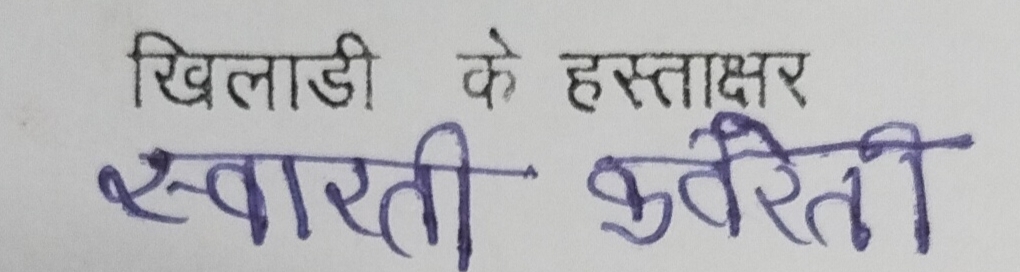 खिलाडी के हस्ताक्षर
स्वारती कुवंरेती